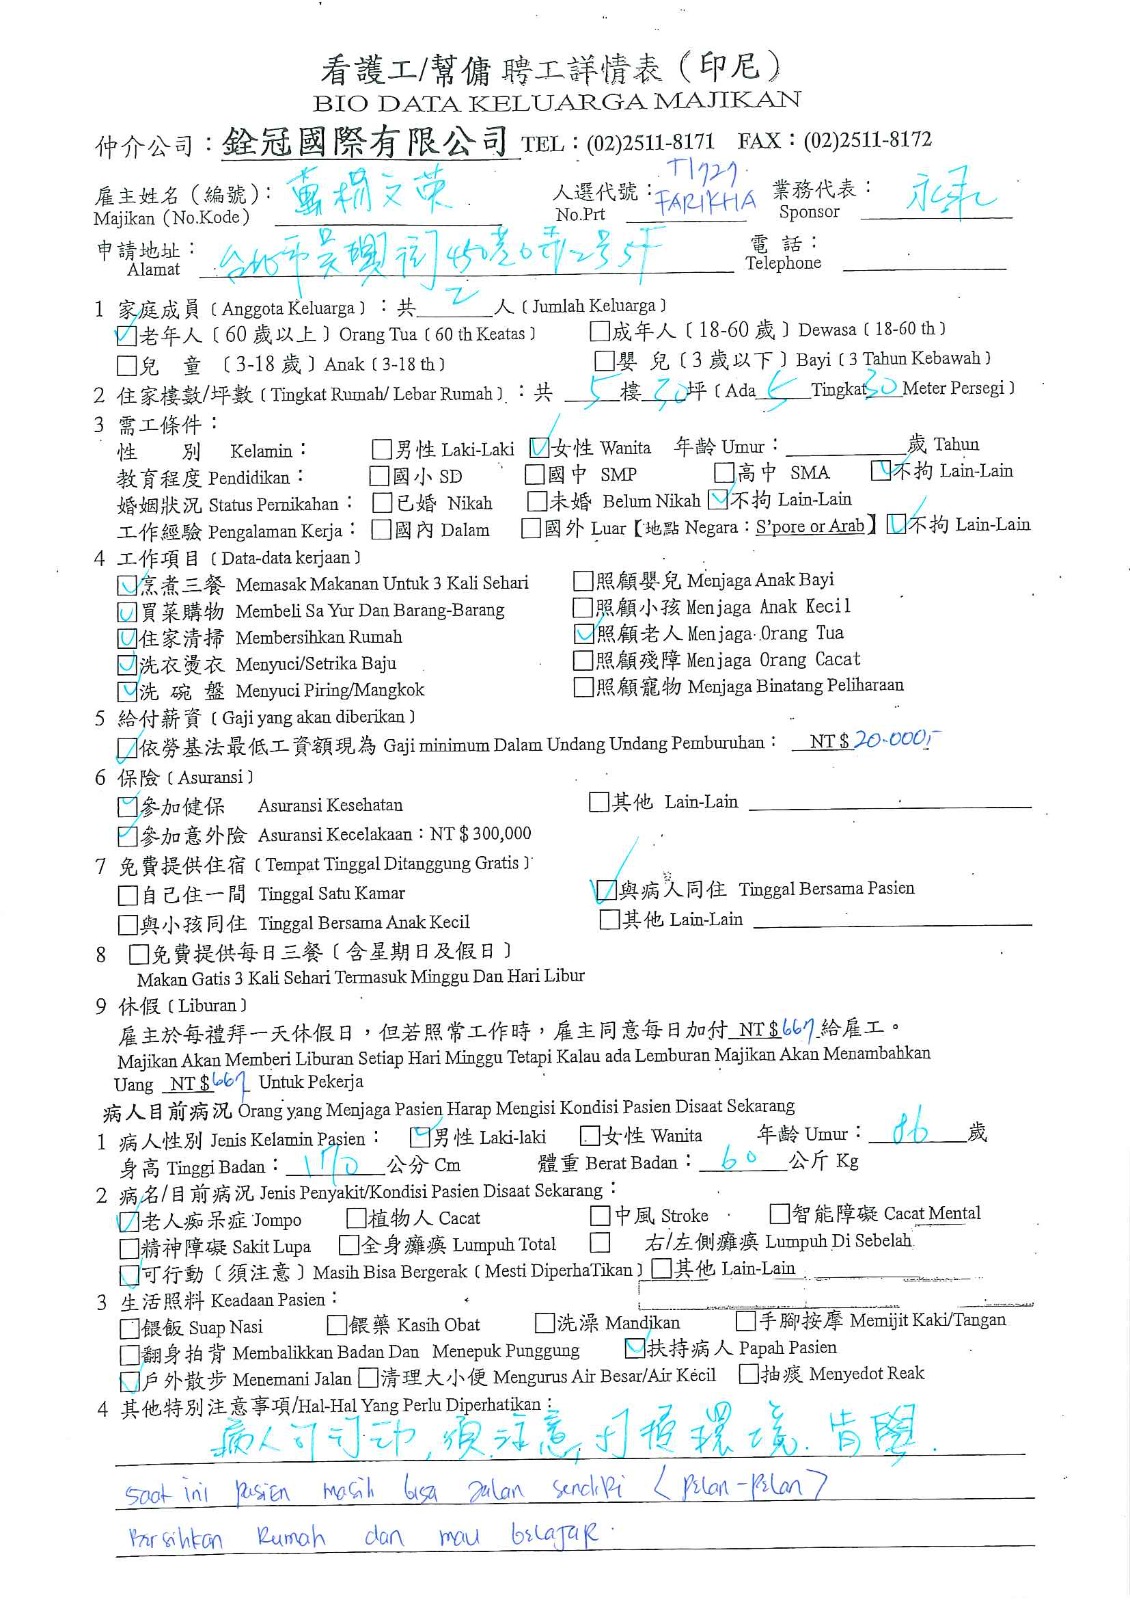 看護工/幫傭 聘工詳情表（印尼）
BIO DATA KELUARGA MAJIKAN
仲介公司：銓冠國際有限公司 TEL：(02)2511-8171 FAX：(02)2511-8172
雇主姓名（編號）： 人選代號： T1727 業務代表：
Majikan (No.Kode) No.Prt FARIKHA Sponsor
申請地址： 台北市吳興街450巷 電 話：
Alamat Telephone
1 家庭成員〔Anggota Keluarga〕：共 2 人〔Jumlah Keluarga〕
☑老年人〔60 歲以上〕Orang Tua〔60 th Keatas〕 □成年人〔18-60 歲〕Dewasa〔18-60 th〕
□兒 童 〔3-18 歲〕Anak〔3-18 th〕 □嬰 兒〔3 歲以下〕Bayi〔3 Tahun Kebawah〕
2 住家樓數/坪數〔Tingkat Rumah/ Lebar Rumah〕：共 5 樓 30 坪〔Ada 5 Tingkat 30 Meter Persegi〕
3 需工條件：
性 別 Kelamin： □男性 Laki-Laki ☑女性 Wanita 年齡 Umur： 歲 Tahun
教育程度 Pendidikan： □國小 SD □國中 SMP □高中 SMA ☑不拘 Lain-Lain
婚姻狀況 Status Pernikahan： □已婚 Nikah □未婚 Belum Nikah ☑不拘 Lain-Lain
工作經驗 Pengalaman Kerja： □國內 Dalam □國外 Luar【地點 Negara：S'pore or Arab】☑不拘 Lain-Lain
4 工作項目〔Data-data kerjaan〕
☑烹煮三餐 Memasak Makanan Untuk 3 Kali Sehari □照顧嬰兒 Menjaga Anak Bayi
☑買菜購物 Membeli Sa Yur Dan Barang-Barang □照顧小孩 Menjaga Anak Kecil
☑住家清掃 Membersihkan Rumah ☑照顧老人 Menjaga Orang Tua
☑洗衣燙衣 Menyuci/Setrika Baju □照顧殘障 Menjaga Orang Cacat
☑洗 碗 盤 Menyuci Piring/Mangkok □照顧寵物 Menjaga Binatang Peliharaan
5 給付薪資〔Gaji yang akan diberikan〕
☑依勞基法最低工資額現為 Gaji minimum Dalam Undang Undang Pemburuhan： NT＄20.000,-
6 保險〔Asuransi〕
☑參加健保 Asuransi Kesehatan □其他 Lain-Lain
☑參加意外險 Asuransi Kecelakaan：NT＄300,000
7 免費提供住宿〔Tempat Tinggal Ditanggung Gratis〕
□自己住一間 Tinggal Satu Kamar ☑與病人同住 Tinggal Bersama Pasien
□與小孩同住 Tinggal Bersama Anak Kecil □其他 Lain-Lain
8 □免費提供每日三餐〔含星期日及假日〕
Makan Gatis 3 Kali Sehari Termasuk Minggu Dan Hari Libur
9 休假〔Liburan〕
雇主於每禮拜一天休假日，但若照常工作時，雇主同意每日加付 NT＄667 給雇工。
Majikan Akan Memberi Liburan Setiap Hari Minggu Tetapi Kalau ada Lemburan Majikan Akan Menambahkan
Uang NT＄667 Untuk Pekerja
病人目前病況 Orang yang Menjaga Pasien Harap Mengisi Kondisi Pasien Disaat Sekarang
1 病人性別 Jenis Kelamin Pasien： ☑男性 Laki-laki □女性 Wanita 年齡 Umur： 86 歲
身高 Tinggi Badan： 170 公分 Cm 體重 Berat Badan： 60 公斤 Kg
2 病名/目前病況 Jenis Penyakit/Kondisi Pasien Disaat Sekarang：
☑老人痴呆症 Jompo □植物人 Cacat □中風 Stroke □智能障礙 Cacat Mental
□精神障礙 Sakit Lupa □全身癱瘓 Lumpuh Total □ 右/左側癱瘓 Lumpuh Di Sebelah
☑可行動〔須注意〕Masih Bisa Bergerak〔Mesti DiperhaTikan〕□其他 Lain-Lain
3 生活照料 Keadaan Pasien：
□餵飯 Suap Nasi □餵藥 Kasih Obat □洗澡 Mandikan □手腳按摩 Memijit Kaki/Tangan
□翻身拍背 Membalikkan Badan Dan Menepuk Punggung ☑扶持病人 Papah Pasien
☑戶外散步 Menemani Jalan □清理大小便 Mengurus Air Besar/Air Kecil □抽痰 Menyedot Reak
4 其他特別注意事項/Hal-Hal Yang Perlu Diperhatikan：
病人可行動，須注意，打掃環境，肯學.
Saat ini pasien masih bisa jalan sendiri (pelan-pelan)
Bersihkan Rumah dan mau belajar.